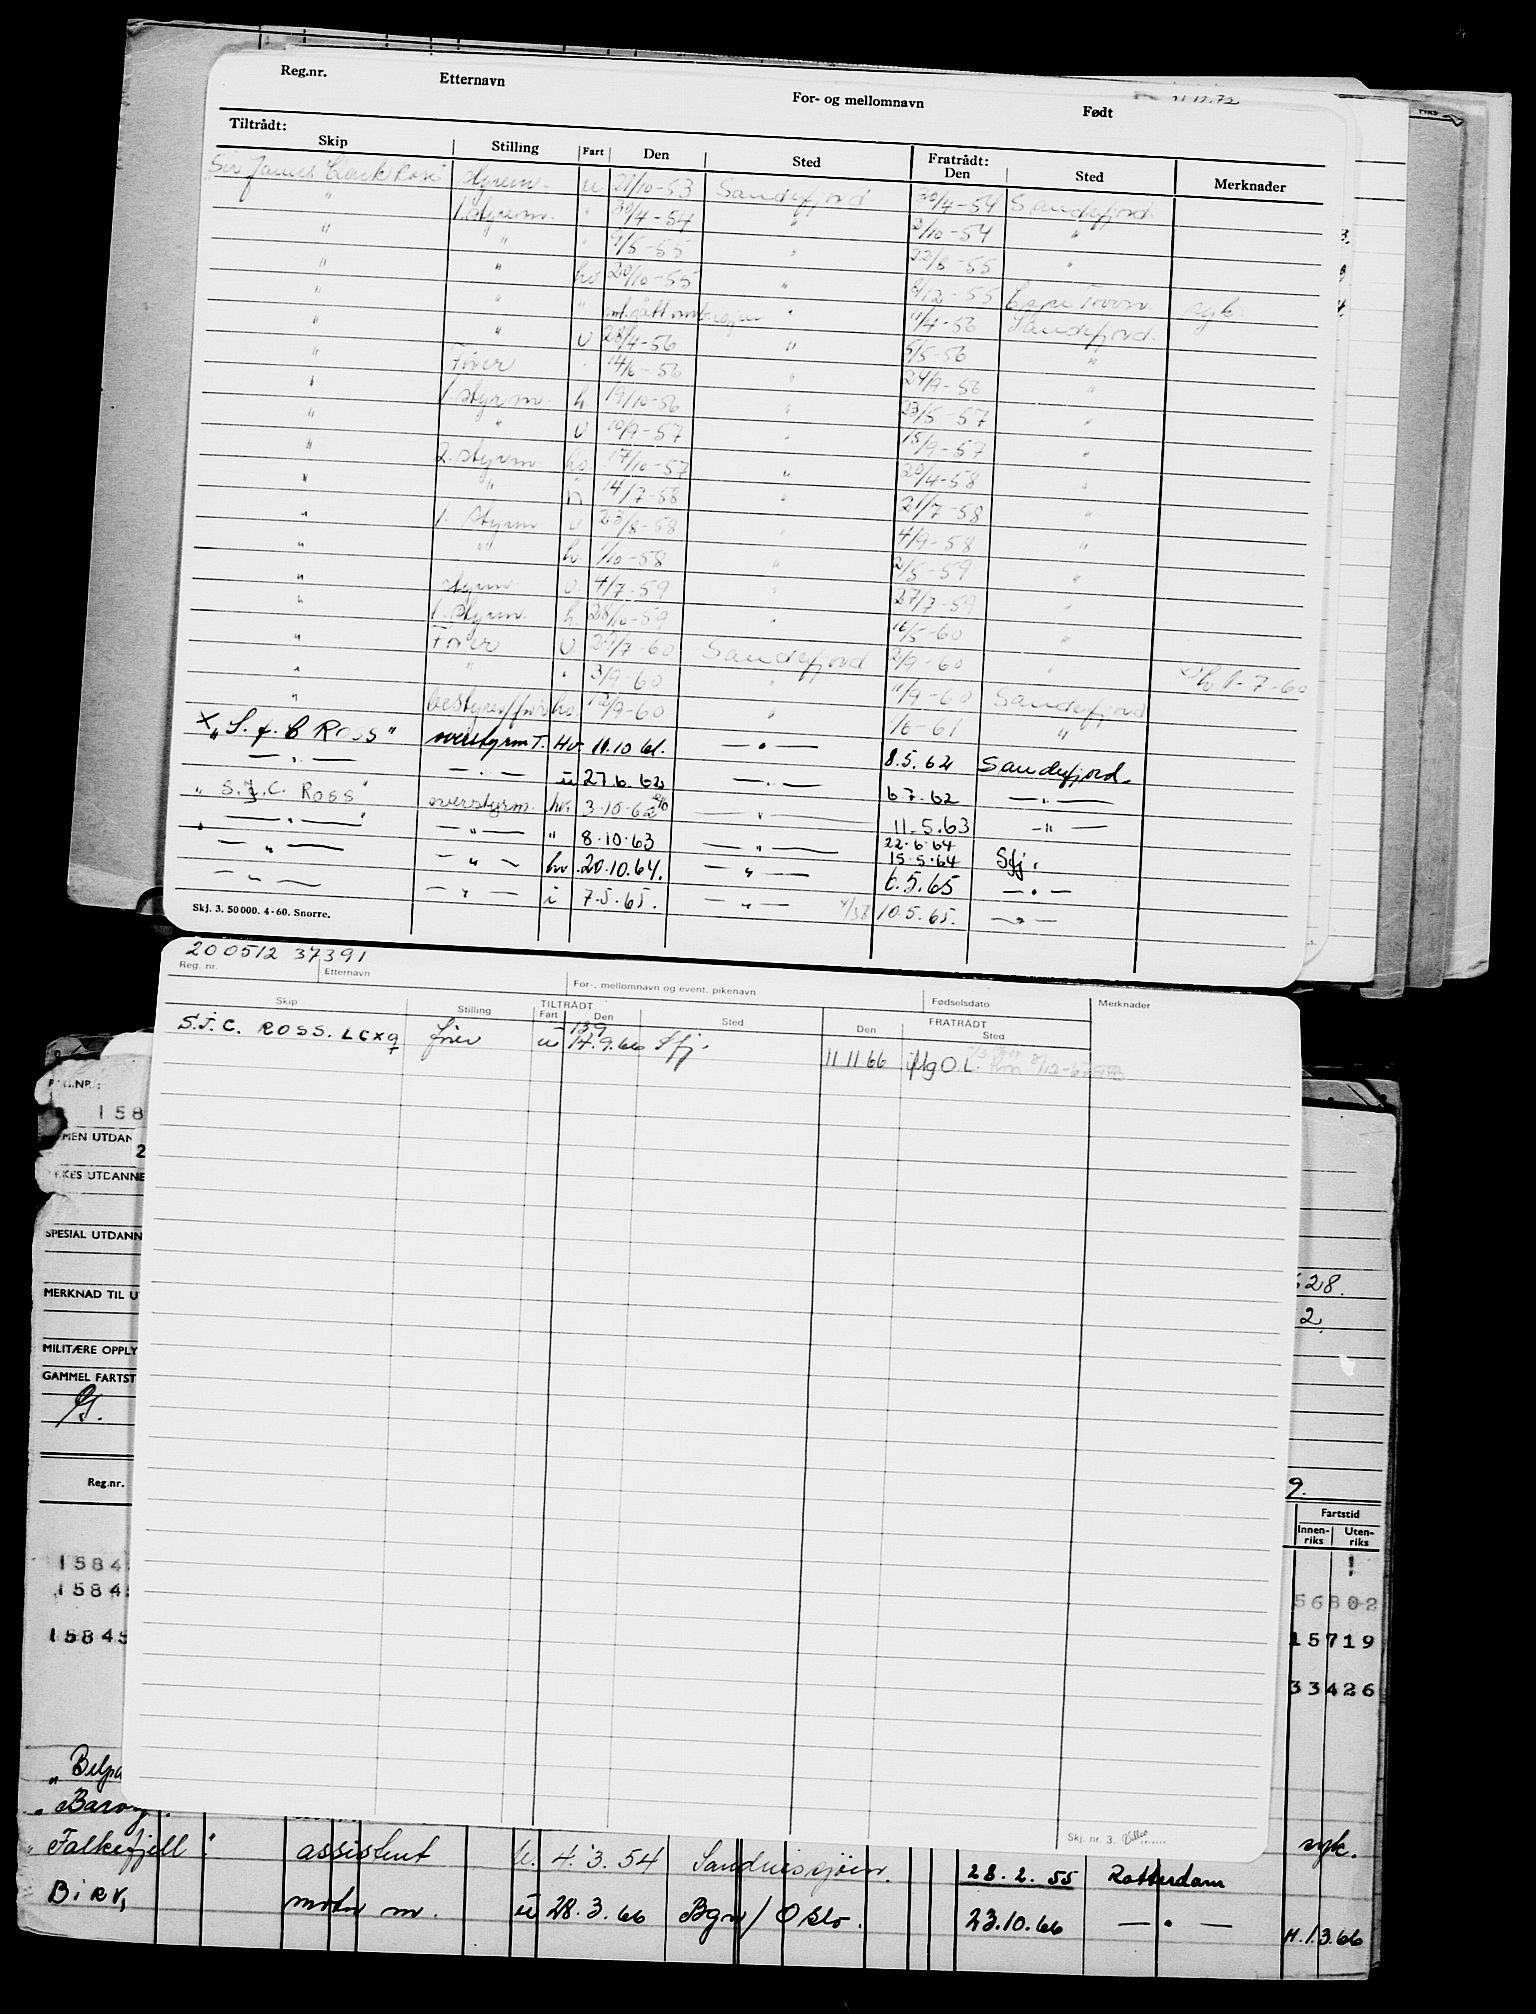 Reg.nr. Etternavn For- og mellomnavn Født
Tiltrådt: Fratrådt:
Skip Stilling Fart Den Sted Den Sted Merknader
Sir James Clark Ross styrm. u 21/10-53 Sandefjord 30/4-54 Sandefjord
" 1. styrm. " 30/4-54 " 2/10-54 "
" " " 9/5-55 " 22/8-55 "
" " hv 20/10-55 " 8/12-55 Cape Town syk
" " " " 11/4-56 Sandefjord
" " u 28/4-56 " 5/5-56 "
" Fører " 14/6-56 " 24/9-56 "
" 1. styrm. h 19/10-56 " 23/5-57 "
" " u 10/9-57 " 15/9-57 "
" 2. styrm hv 17/10-57 " 20/4-58 "
" " u 14/7-58 " 21/7-58 "
" 1. styrm u 23/8-58 " 4/9-58 "
" " h. 1/10-58 " 2/5-59 "
" styrm. u. 4/7-59 " 27/7-59 "
" 1. styrm. h. 28/10-59 " 16/5-60 "
" Fører u 29/7-60 Sandefjord 2/9-60 "
" " " 3/9-60 " 11/9-60 Sandefjord 1-7-60
" bestyrer/fører hv. 12/9-60 " 1/6-61 "
x "S. J. C ROSS" overstyrm T. Hv 11.10 61. — " — 8.5.62 Sandefjord.
— " — — " — u 27.6.62 — " — 6 7.62 — " —
" S.J.C. ROSS " overstyrm. hv. 3.10-62 — " — 11.5.63 — " —
— " — — " — " 8.10.63 — " — 22.6.64 15.5.64 Sfj.
— " — — " — hv .20.10.64. — " — 6.5.65 — " —
— " — — " — i 7.5.65. — " — 10.5.65. — " —
Skj. 3. 50000. 4-60. Snorre.
200512 37391
Reg. nr. Etternavn For-, mellomnavn og event. pikenavn Fødselsdato Merknader
TILTRÅDT FRATRÅDT
Skip Stilling Fart Den Sted Den Sted
13.9
S.J.C. ROSS. LCXQ fører u 14.9.66 Sfj. 11 11 66 iflg O.L. 8/12-67
Skj. nr. 3.
REG.NR.:
158
2
SPESIAL UTDANN
MERKNAD TIL U
MILITÆRE OPPLY
GAMMEL FARTST
628.
2.
Reg.nr.
9.
Fartstid
Innen-riks Uten-riks
1584
15845
15845
1
56802
15719
33426
" Falkefjell " assistent u. 4.3.54 28.2.55 Rotterdam syk.
BiRK, motor m. u 28.3.66 Bgn/Oslo. 23.10.66 — " — H.1.3.66